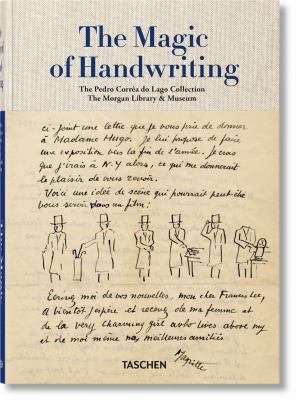 The Magic
of Handwriting
The Pedro Corrêa do Lago Collection
The Morgan Library & Museum
ci-joint une lettre que je vous prie de donner
à Madame Hugo. Je lui propose de faire
une exposition vers la fin de l'année. Je crois
que j'irais à N-Y alors, ce qui me donnerait
le plaisir de vous revoir.
Voici une idée de scène qui pourrait peut-être
vous servir dans un film:
Écrivez moi de vos nouvelles, mon cher Francis Lee,
à bientôt j'espère et recevez de ma femme et
de la very charming girl who lives above my
et de moi même nos meilleures amitiés
Magritte
TASCHEN